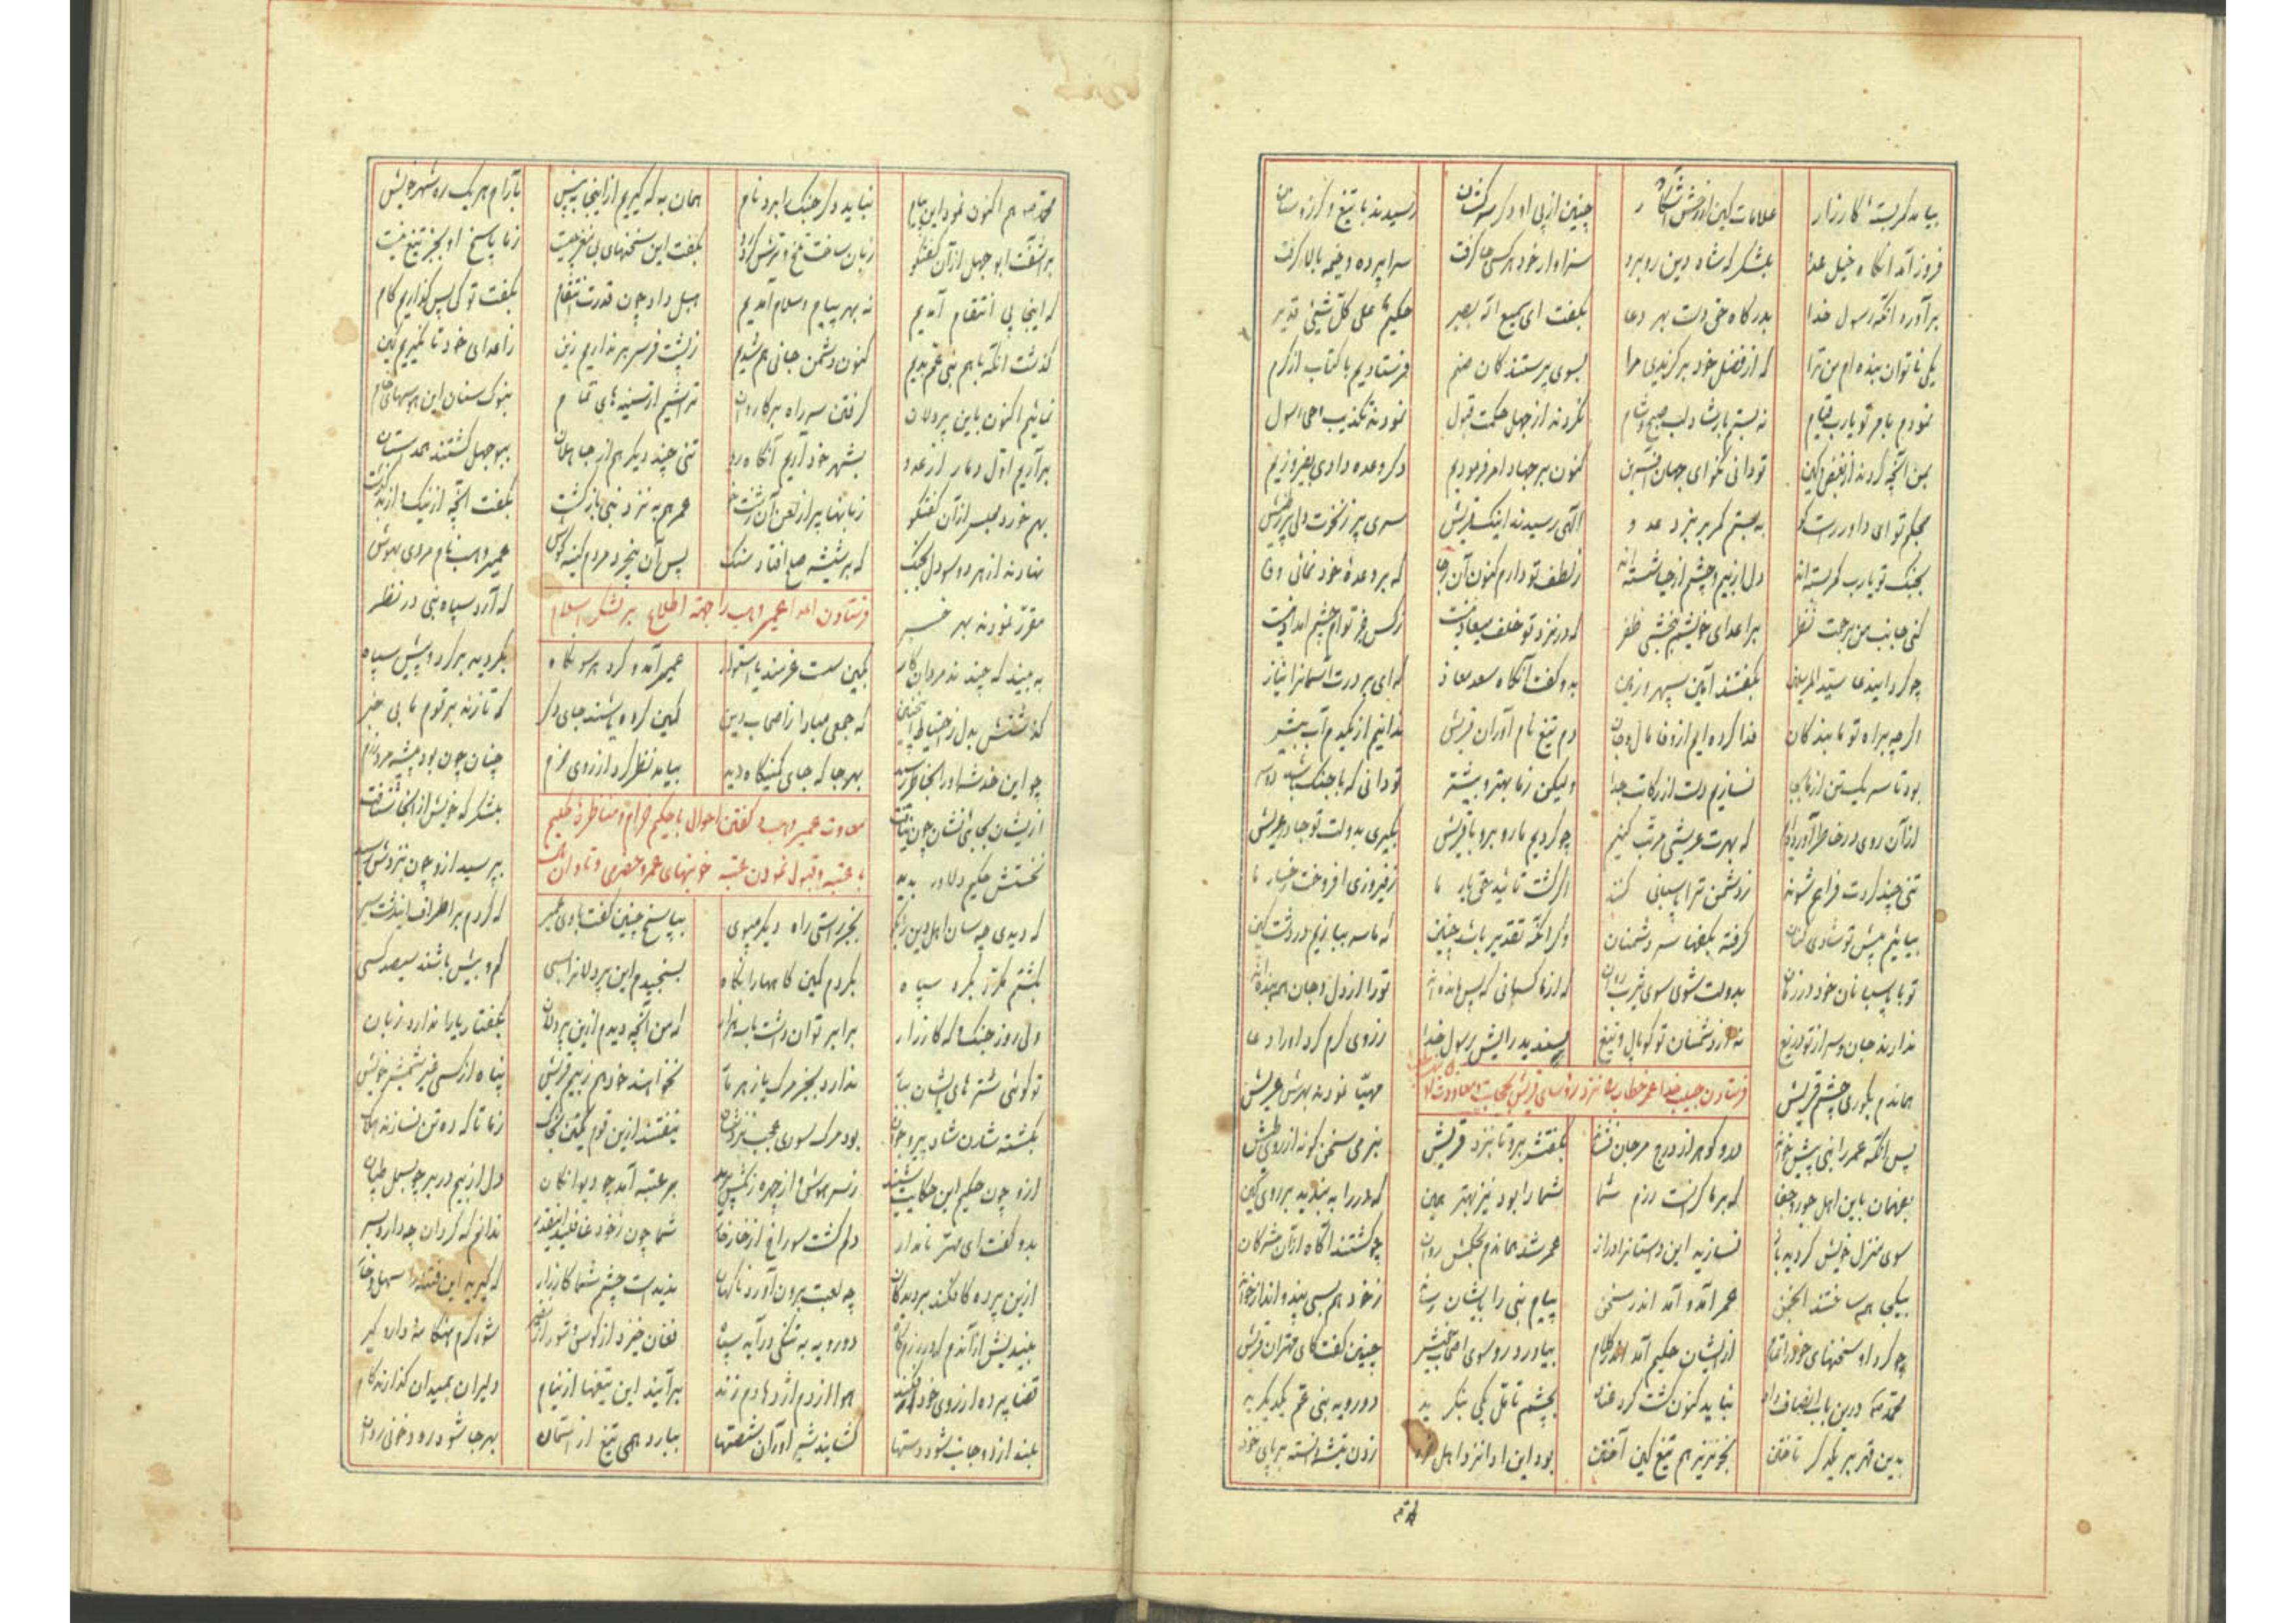 بیامد کمربستهٔ کارزار علامات کین از رخش آشکار چنین از پی او دگر سرکشان رسیدند با تیغ و گرز و سنان
فرود آمد آنگاه خیل عدو بلشکر که شاه دین روبرو سزاوار خود هر کسی جا گرفت سراپرده و خیمه بالا گرفت
برآورد آنگه رسول خدا بدرگاه حق دست بهر دعا بگفت ای سمیع انه بصیر حکیم علی کل شیئی قدیر
یکی ناتوان بنده‌ام من ترا که از فضل خود برگزیدی مرا بسوی پرستندگان صنم فرستادیم با کتاب از کرم
نمودم بامر تو یارب قیام نه بستم ز ارشاد لب صبح و شام نکردند از جهل حکمت قبول نمودند تکذیب
بمن آنچه کردند از بغض و کین تو دانی نکو ای جهان آفرین کنون بر جهاد امر فرمودیم دگر وعده دادی بفیروزیم
بحکم تو ای داور راست گو به بستم کمر بر نبرد عدو الهی رسیدند اینک قریش سری پر ز نخوت دلی پر ز طیش
بجنگ تو یارب کمر بسته‌اند دل از بیم و چشم از حیا شسته‌اند ز لطف تو دارم کنون آن رجا که بر وعدهٔ خود نمائی وفا
کنی جانب من برحمت نظر بر اعدای خویشم ببخشی ظفر که در نزد تو خلف میعاد نیست ز کس جز توام چشم امداد نیست
چو کرد ایندعا سید المرسلین بگفتند آمین سپهر و زمین بدو گفت آنگاه سعد معاذ که ای بر درت آسمانرا نیاز
اگر چه براه تو ما بندگان فدا کرده‌ایم از وفا مال و جان دم تیغ نام آوران قریش ندانیم از یکدم آب بیش
بود تا سر یک تن از ما بجا نسازیم دست از رکابت جدا ولیکن ز ما بهتر و بیشتر تو دانی که با جنگ باشد دو سر
از آن روی در خاطر آورده‌ایم که بهرت عریشی مرتب کنیم چو گردیم ما روبرو با قریش بگیری بدولت تو جا در عریش
تنی چند گردت فراهم شوند ز دشمن ترا پاسبانی کنند اگر گشت تائید حق یار ما ز فیروزی افروخت رخسار ما
بیائیم پیش تو شادی کنان گرفته بکفها سر دشمنان وگر آنکه تقدیر باشد چنین که ما سر ببازیم در دشت کین
تو با پاسبانان خود در زمان بدولت شوی سوی یثرب روان که از ما کسانی که پس مانده‌اند تو را از دل و جان همه بنده‌اند
ندارند جان و سر از تو دریغ نه از دشمنان تو کوپال و تیغ پسندید رایش رسول خدا ز روی کرم کرد او را دعا
هماندم بکوری چشم قریش مهیا نمودند بهرش عریش
فرستادن حبیب خدا عمر خطاب را نزد رؤسای قریش
پس آنگه عمر را نبی پیش خواند در و گوهر از درج مرجان فشاند بگفتش برو تا بنزد قریش بنرمی سخن گو نه از روی طیش
بفهمان باین اهل جور و جفا که بر ما گرانست رزم شما شما را بود نیز بهتر همین که در را به بندید بر روی کین
سوی منزل خویش گردید باز نسازید این داستانرا دراز عمر شد هماندم بحکمش روان چو گشتند آگاه از آن مشرکان
بیکجا بهم ساختند انجمن عمر آمد و آمد اندر سخن پیام نبی را بایشان رساند ز خود هم بسی پند و اندرز خواند
چو کرد او سخنهای خود را تمام از ایشان حکیم آمد اندر کلام بیاورد رو سوی اصحاب خیش چنین گفت کای مهتران قریش
محمد درین باب انصاف داد نباید کنون گشت گرد عناد بچشم تامل یکی بنگرید دو رویه بنی عم یکدیگرید
بدین قهر بر یکدگر تاختن بخونریز هم تیغ کین آختن بود این ادا نزد اهل خرد زدن تیشه دانسته بر پای خود
محمد هم اکنون نمود این پیام نباید دگر جنگ را برد نام همان به که گیریم از اینجا به پیش بآرام هر یک ره شهر خویش
برآشفت ابوجهل از آن گفتگو زبان ساخت تلخ و ترش کرد رو بگفت این سخنهای بی مغز چیست ز ما پاسخ او بجز تیغ نیست
که اینجا پی انتقام آمدیم نه بهر پیام و سلام آمدیم هبل داد چون قدرت انتقام بگفت تو کی پس گذاریم گام
گذشت آنکه با هم بنی عم بدیم کنون دشمن جانی هم شدیم ز پشت فرس بر نداریم زین ز اعدای خود تا نگیریم کین
نمائیم اکنون باین پردلان گرفتن سر راه بر کاروان تراشیم از سینه‌های تمام بنوک سنان این هوسهای خام
برآریم اول دمار از عدو بشهر خود آریم آنگاه رو تنی چند دیگر هم از جاهلان ببوجهل گشتند همداستان
بهم خورد مجلس از آن گفتگو زبانها پر از لعن آن زشت خو عمر هم به نزد نبی بازگشت بگفت آنچه از نیک و از بد گذشت
نهادند از هر دو سو دل بجنگ که بر شیشه صلح افتاد سنگ پس آن بیخرد مردم کینه کوش عمیر وهب نام مردی بهوش
فرستادن اعدا عمیر وهب را جهة اطلاع بر لشکر اسلام
مقرر نمودند بهر خبر که آرد سپاه نبی در نظر
به بیند که چند مردان کار بکین سست عزمند یا استوار عمیر آمد و کرد هر سو نگاه بگردید بر گرد و پیش سپاه
گذشتش بدل ز احتیاط اینچنین که جمعی مبادا ز اصحاب دین کمین کرده باشند جای دگر که تازند بر قوم ما بی خبر
چو این خدشه او را بخاطر رسید بهر جا که جای کمینگاه دید بیامد نظر کرد از روی حزم چنان چون بود پیشه مردان رزم
از ایشان بجائی نشان چون نیافت بلشکرگه خویش از آنجا شتافت
معاودت عمیر وهب و گفتن احوال با حکیم حزام و مناظره حکیم
با عتبه و قبول نمودن عتبه خونبهای عمرو حضرمی و تاوان
نخستش حکیم دلاور بدید بپرسید ازو چون بنزدش رسید
که دیدی چه سان اهل دین را بگو بجز راستی راه دیگر مپوی بپاسخ چنین گفت با وی عمیر که کردم بر اطراف ایندشت سیر
بگشتم مکرر بگرد سپاه بکردم کمین گاهها را نگاه بسنجیدم این پردلانرا بسی کم و بیش باشند سیصد کسی
ولی روز جنگ و گه کارزار برابر توان داشت با صد هزار که من آنچه دیدم ازین پردلان بگفتار یارا ندارد زبان
تو گوئی شترهای ایشان ببار ندارد بجز مرگ یا زهر مار نخواهند خود هم ز بیم قریش پناه از کسی غیر شمشیر خویش
بکشته شدن شاد پیر و جوان بود مرگ سوری عجب نزدشان نیفتند ازین قوم یکتن بخاک ز ما تا که ده تن نسازند هلاک
ازو چون حکیم این حکایت شنید ز سر هوش و از چهره رنگش پرید بر عتبه آمد چو دیوانگان دل از بیم در بر چو بسمل طپان
بدو گفت ای مهتر نامدار دلم گشت سوراخ از خارخار شما چون ز خود غافلید اینقدر ندانم که گردان چه دارد بسر
ازین پرده کافکند بر دیدگان چه لعبت برون آورد ناگهان ندیدست چشم شما کارزار که گیرید این فتنه را سهل و خوار
بیندیش از آندم که در رزمگاه دو رویه به تنگی درآید سپاه فغان خیزد از کوس و شور از نفیر شود گرم هنگامهٔ دار و گیر
قضا پرده از روی خود افکند هوا از دم اژدها دم زند برآیند این تیغها از نیام دلیران بمیدان گذارند گام
بلند از دو جانب شود دستها گشایند شیر اوژنان شصتها ببارد همی تیغ از آسمان بهر جا شود رود خونی روان